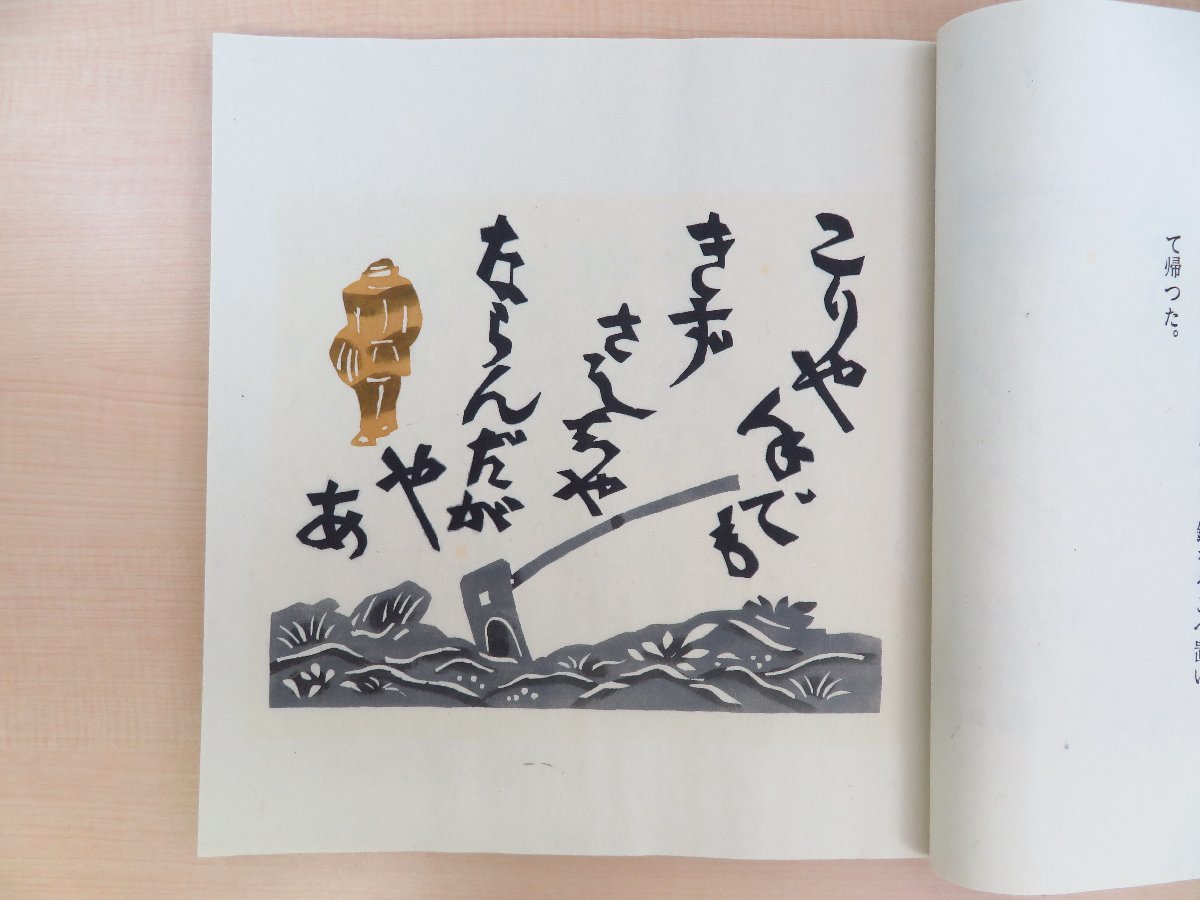 て帰つた。
こりや
手でも
きず
さしちや
ならんだが
や
あ